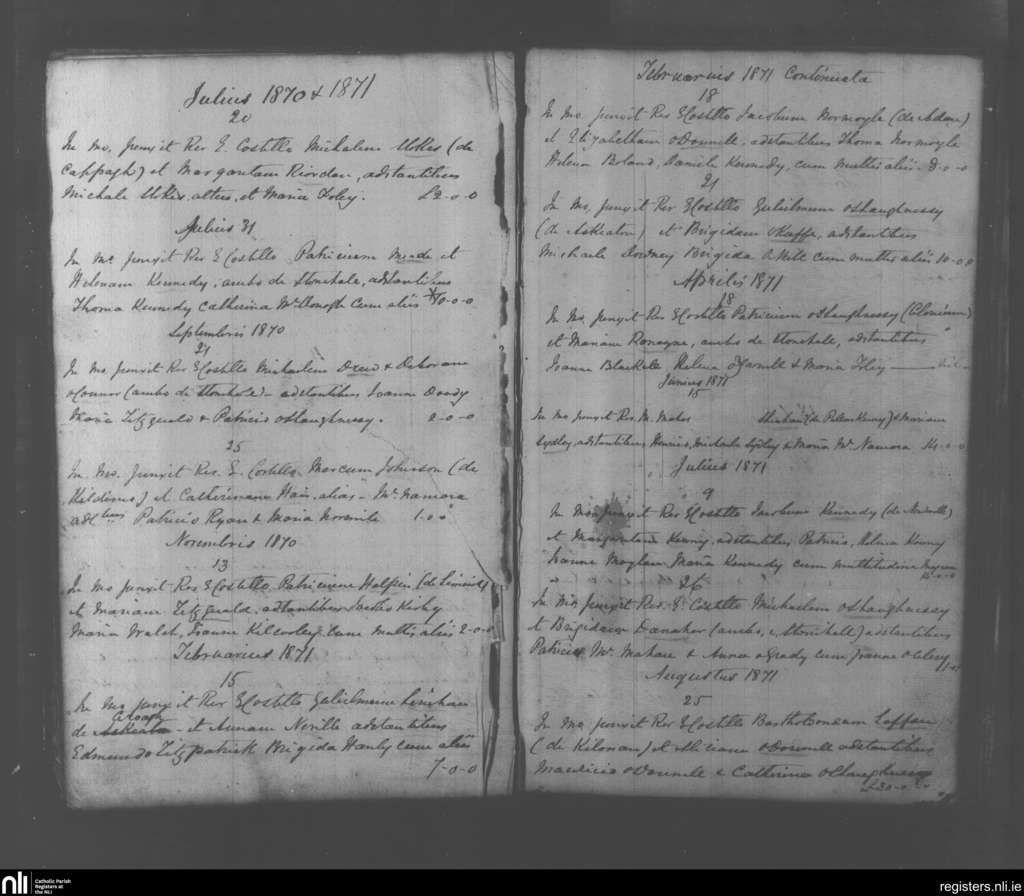 Julius 1870 & 1871
20
In Mo. junxit Rev E. Costello Michalem (de
Cappagh) et Margaritam Riordan, adstantibus
Michale et Maria Foley. £2-0-0
Julius 31
In Mo junxit Rev E Costello Patricium Meade et
Helenam Kennedy, ambo de Stonehale, adstantibus
Thoma Kennedy Catherina McDonogh cum aliis 10-0-0
Septembris 1870
21
In Mo. junxit Rev E Costello Michaelem Drew & Deboram
oConnor (ambo de Stonhale) - adstantibus Joanna Doody
Maria Fitzgerald & Patricio oShaughnessy. 2-0-0
25
In Mo. junxit Rev. E. Costello Marcum Johnson (de
Kildimo) et Catherinam Hair, alias - McNamora
adstibus Patricio Ryan & Maria 1.0.0
Novembris 1870
13
In Mo junxit Rev E Costello, Patricium Halpin (de Limerick)
et Mariam Fitzgerald, adstantibus Jacobo Kirby
Maria Walsh, Joanna cum multis aliis 2-0-0
Februarius 1871
15
In Mo junxit Rev E Costello Gulielmum Linehan
de Croagh - et Annam Neville adstantibus
Edmundo Fitzpatrick Brigida Hanly cum aliis
7-0-0
Februarius 1871 Continuata
18
In Mo. junxit Rev E Costello Jacobum Normoyle (de Adare)
et Elizabetham oDonnell, adstantibus Thoma Normoyle
Helena Boland, Daniele Kennedy, cum multis aliis - 8-0-0
21
In Mo. junxit Rev E Costello Gulielmum oShaughnessy
(de Askeaton) et Brigidam Keeffe, adstantibus
Michaele Downey Brigida cum multis aliis 10-0-0
Aprilis 1871
18
In Mo. junxit Rev E Costello Patricium oShaughnessy
et Mariam Ronayne, ambo de Stonehall, adstantibus
Joanne Blackwell Helena & Maria Foley
Junius 1871
15
In Mo junxit Rev. M. Maher Sheehan (de Pallas Kenry) & Mariam
Sydley, adstantibus Henrico, Michaele Sydley & Maria McNamara 14-0-0
Julius 1871
9
In Mo. junxit Rev E Costello Jacobum Kennedy (de
et Margaritam Kenny, adstantibus Patricio, Helena Kenny
Joanna Moylan Maria Kennedy cum multitudine magna
26
In Mo. junxit Rev. E. Costello Michaelem oShaughnessy
et Brigidam Danaher (ambo, Stonehall) adstantibus
Patricio McMahon & Anna oGrady cum Joanne
Augustus 1871
25
In Mo junxit Rev E Costello Bartholomeum Laffan
(de Kilornan) et oDonnell adstantibus
Mauricio oDonnell & Catherina oShaughnessy
£20-0-0
nli
Catholic Parish
Registers at
the NLI
registers.nli.ie